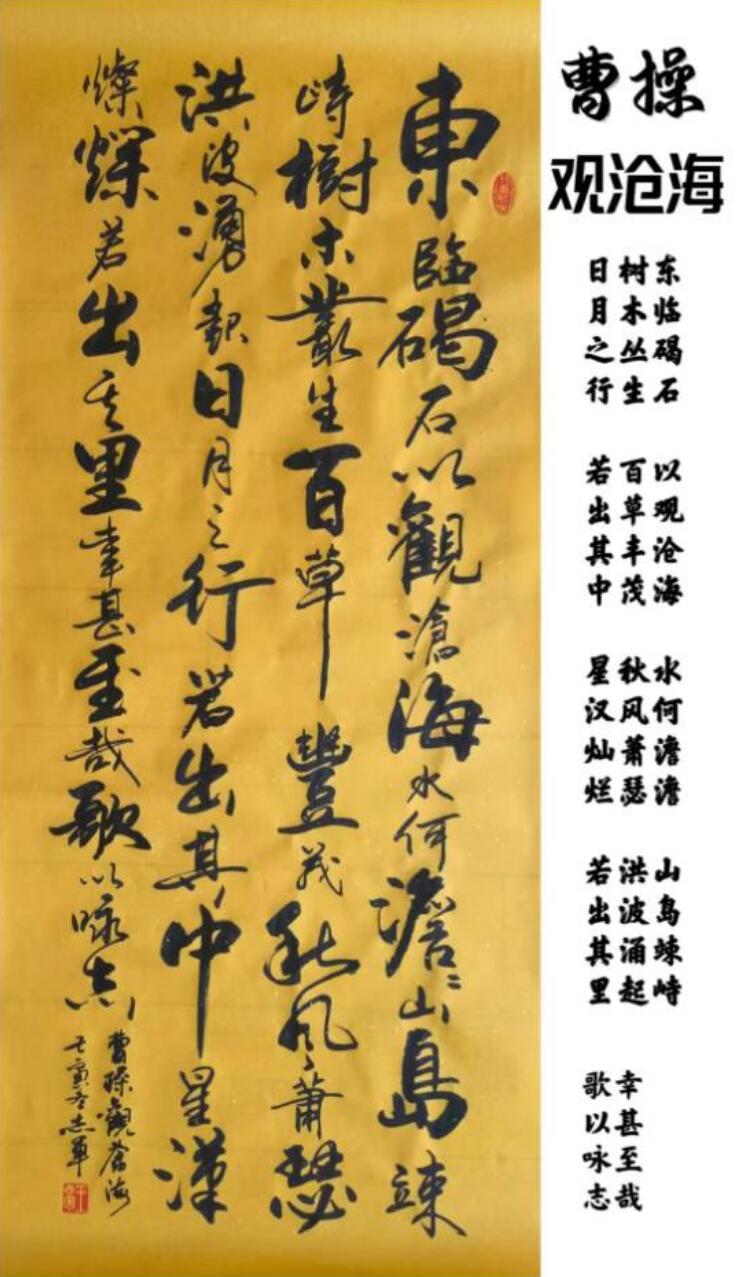 東臨碣石以觀滄海水何澹〻山島竦
峙樹木叢生百草豐茂秋風蕭瑟
洪波湧起日月之行若出其中星漢
燦爛若出其里幸甚至哉歌以咏志
曹操觀蒼海
壬寅冬志軍
曹操
观沧海
东临碣石 以观沧海 水何澹澹 山岛竦峙
树木丛生 百草丰茂 秋风萧瑟 洪波涌起
日月之行 若出其中 星汉灿烂 若出其里
幸甚至哉
歌以咏志